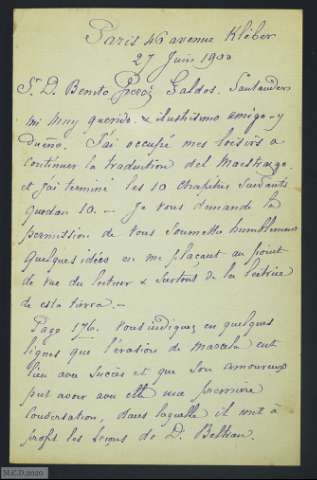 Paris 46 avenue Kléber
27 Juin 1900
Sr. D. Benito Perez Galdos. Santander
mi muy querido & ilustrisimo amigo y
dueño. J'ai occupé mes loisirs à
continuer la traduction del Maestrazgo
et j'ai terminé les 10 chapitres suivants
quedan 10. — Je vous demande la
permission de vous soumettre humblement
quelques idées en me plaçant au point
de vue du lecteur & surtout de la lectrice
de esta tierra. —
Page 176. Vous indiquez en quelques
lignes que l'évasion de Marcela eut
lieu avec succès et que son amoureux
put avoir avec elle une première
conversation, dans laquelle il mit à
profit les leçons de D. Beltran.
M.C.D. 2020